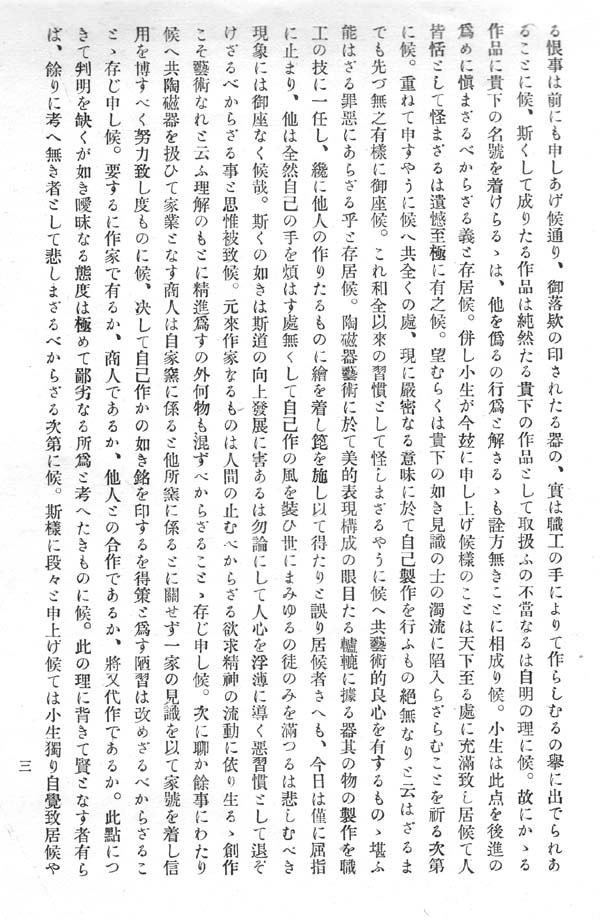 る恨事は前にも申しあげ候通り、御落欵の印されたる器の、實は職工の手によりて作らしむるの擧に出でられあ
ることに候、斯くして成りたる作品は純然たる貴下の作品として取扱ふの不當なるは自明の理に候。故にかゝる
作品に貴下の名號を着けらるゝは、他を僞るの行爲と解さるゝも詮方無きことに相成り候。小生は此点を後進の
爲めに愼まざるべからざる義と存居候。併し小生が今玆に申し上げ候樣のことは天下至る處に充滿致し居候て人
皆恬として怪まざるは遺憾至極に有之候。望むらくは貴下の如き見識の士の濁流に陷入らざらむことを祈る次第
に候。重ねて申すやうに候へ共全くの處、現に嚴密なる意味に於て自己製作を行ふもの絕無なりと云はざるま
でも先づ無之有樣に御座候。これ和全以來の習慣として怪しまざるやうに候へ共藝術的良心を有するものゝ堪ふ
能はざる罪惡にあらざる乎と存居候。陶磁器藝術に於て美的表現構成の眼目たる轆轤に據る器其の物の製作を職
工の技に一任し、纔に他人の作りたるものに繪を着し篦を施し以て得たりと誤り居候者さへも、今日は僅に屈指
に止まり、他は全然自己の手を煩はす處無くして自己作の風を裝ひ世にまみゆるの徒のみを滿つるは悲しむべき
現象には御座なく候哉。斯くの如きは斯道の向上發展に害あるは勿論にして人心を浮薄に導く惡習慣として退ぞ
けざるべからざる事と思惟被致候。元來作家なるものは人間の止むべからざる欲求精神の流動に依り生るゝ創作
こそ藝術なれと云ふ理解のもとに精進爲すの外何物も混ずべからざることゝ存じ申し候。次に聊か餘事にわたり
候へ共陶磁器を扱ひて家業となす商人は自家窯に係ると他所窯に係るとに關せず一家の見識を以て家號を着し信
用を博すべく努力致し度ものに候、决して自己作かの如き銘を印するを得策と爲す陋習は改めざるべからざるこ
とゝ存じ申し候。要するに作家で有るか、商人であるか、他人との合作であるか、將又代作であるか。此點につ
きて判明を缺くが如き曖昧なる態度は極めて鄙劣なる所爲と考へたきものに候。此の理に背きて賢となす者有ら
ば、餘りに考へ無き者として悲しまざるべからざる次第に候。斯樣に段々と申上げ候ては小生獨り自覺致居候や
三